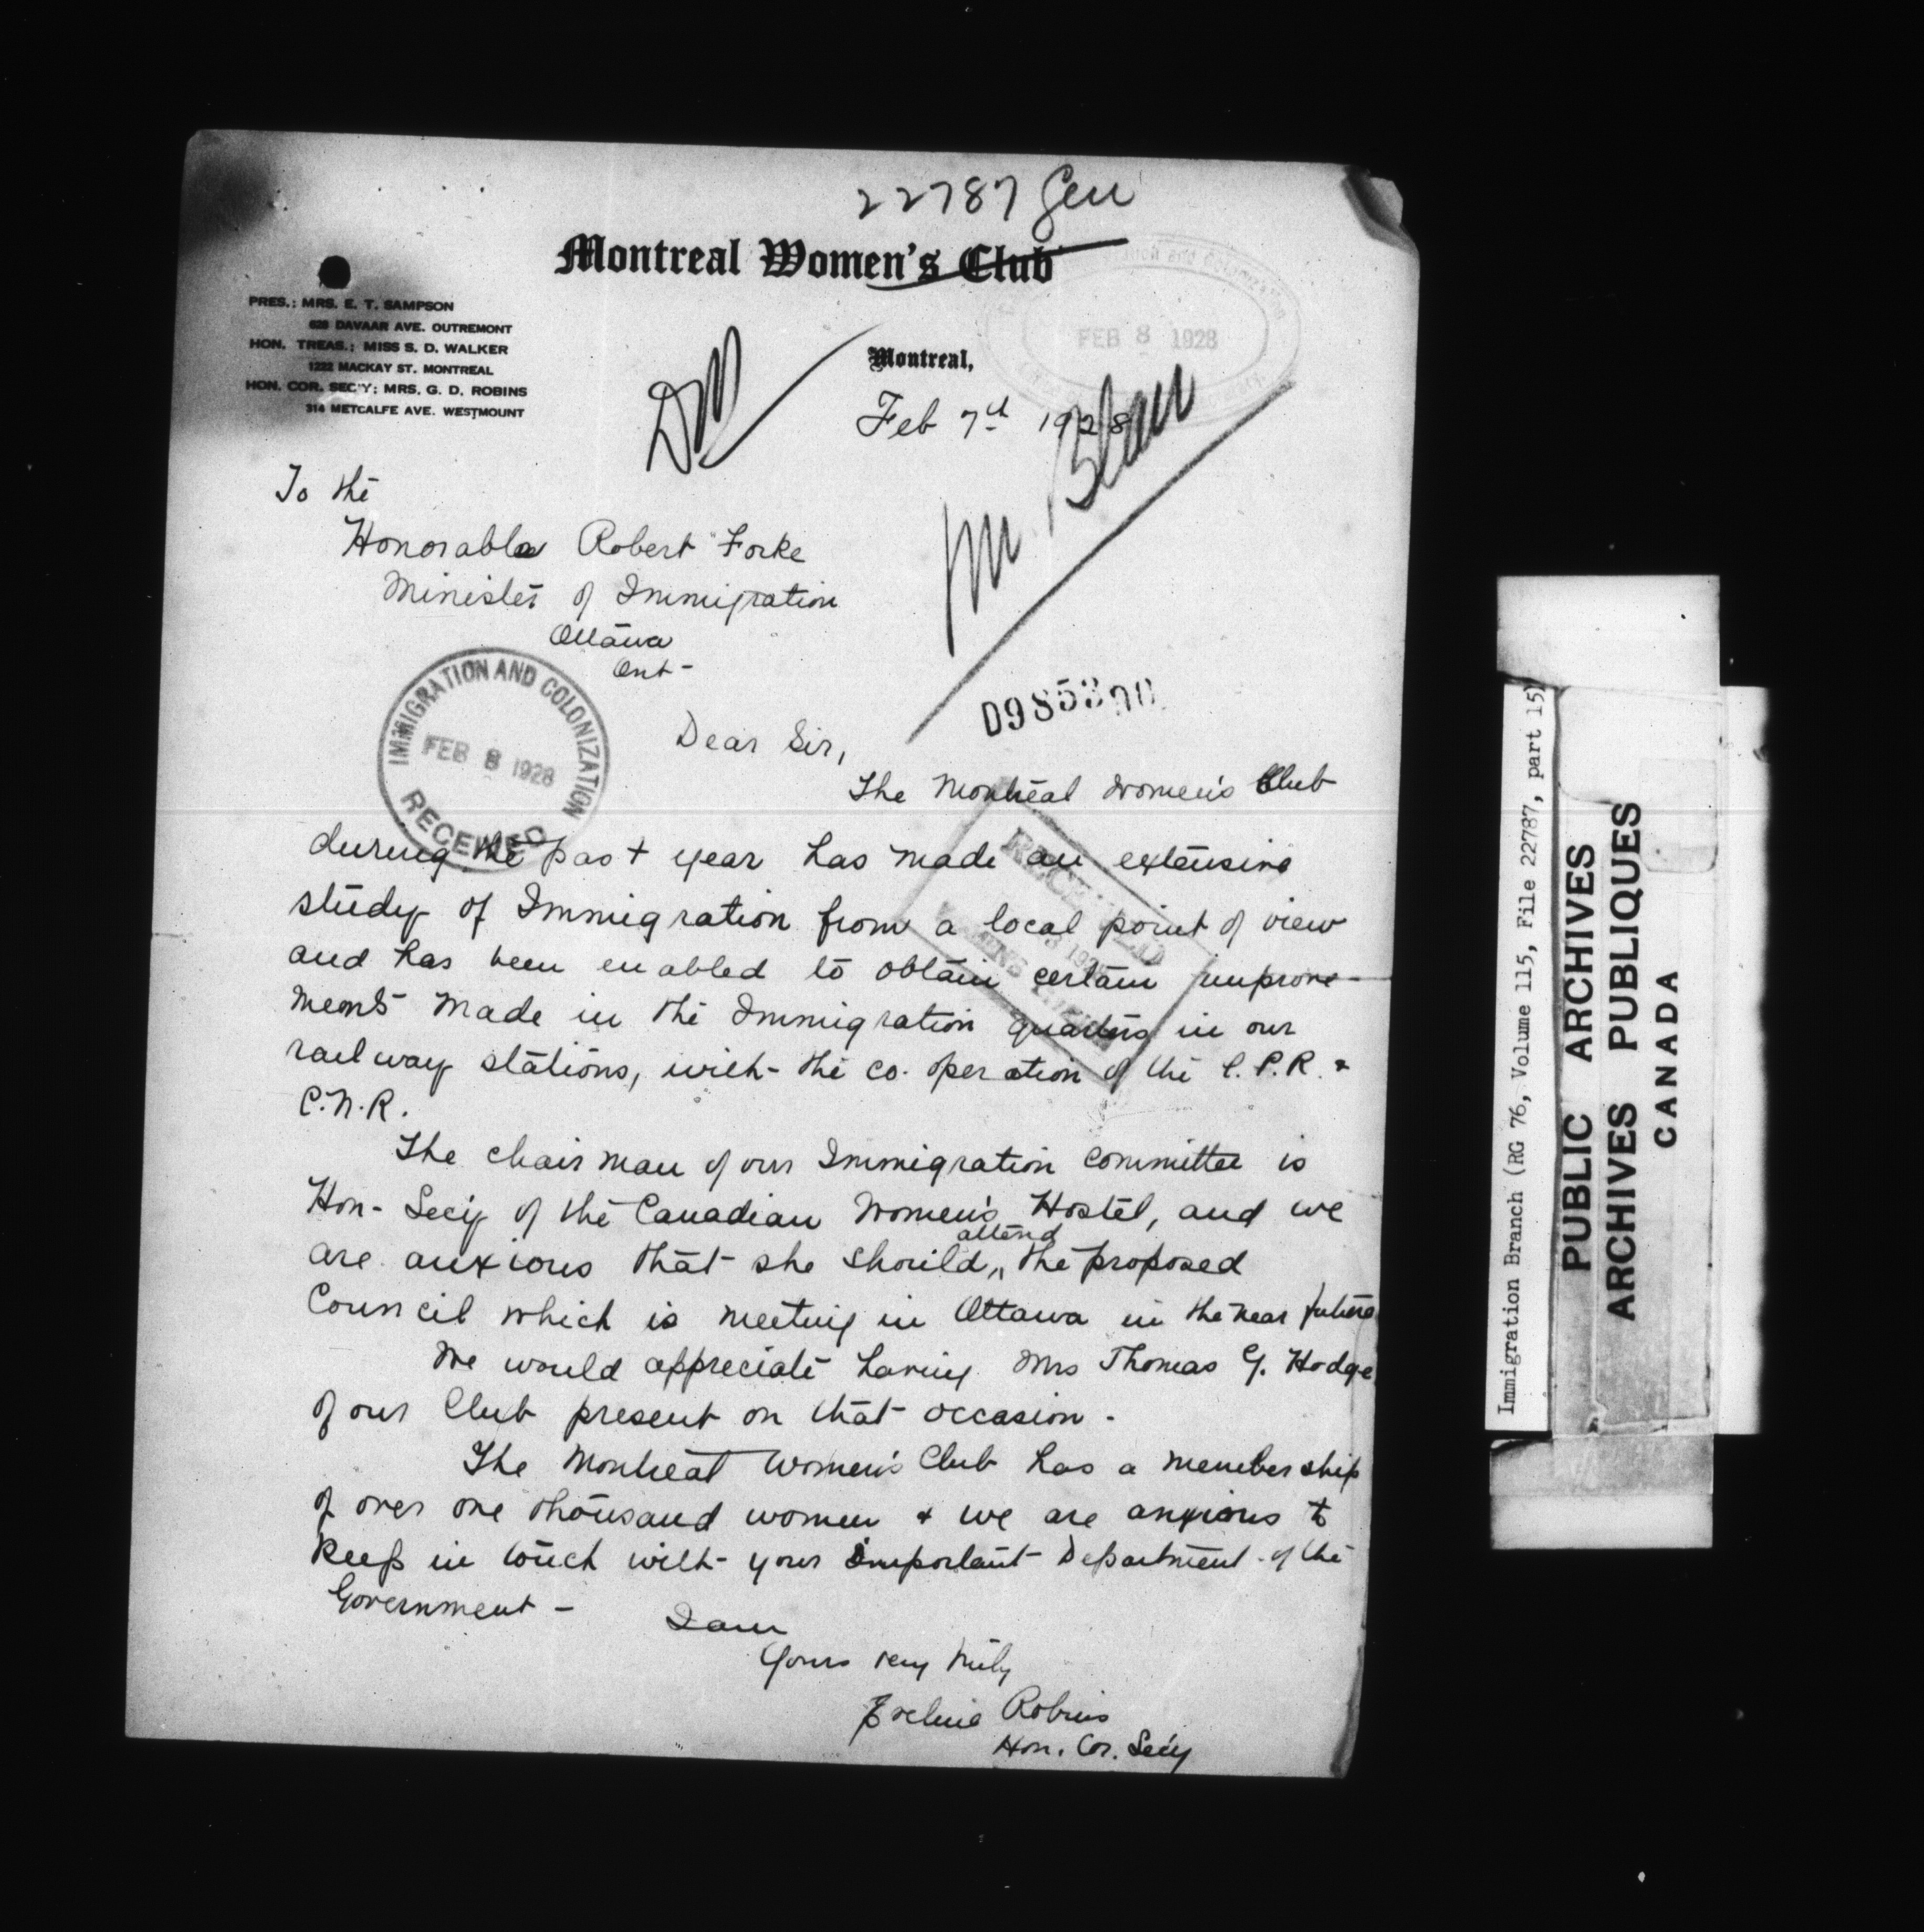 22787 Gen
Montreal Women's Club
PRES.: MRS. E. T. SAMPSON
628 DAVAAR AVE. OUTREMONT
HON. TREAS.: MISS S. D. WALKER
1222 MACKAY ST. MONTREAL
HON. COR. SEC'Y: MRS. G. D. ROBINS
314 METCALFE AVE. WESTMOUNT
FEB 8 1928
Montreal,
Feb 7th 1928
Mr. Blair
To the
Honorable Robert Forke
Minister of Immigration
Ottawa
Ont-
IMMIGRATION AND COLONIZATION
FEB 8 1928
RECEIVED
D985370
Dear Sir,
The Montreal Women's Club
during the past year has made an extensive
study of Immigration from a local point of view
and has been enabled to obtain certain improve-
ments made in the Immigration quarters in our
railway stations, with the co-operation of the C.P.R. &
C.N.R.
RECEIVED
The chairman of our Immigration Committee is
Hon- Sec'y of the Canadian Women's Hostel, and we
are anxious that she should attend the proposed
Council which is meeting in Ottawa in the near future
We would appreciate having Mrs Thomas G. Hodge
of our Club present on that occasion.
The Montreal Women's Club has a membership
of over one thousand women & we are anxious to
keep in touch with your important Department of the
Government -
I am
Yours very truly
Eveline Robins
Hon. Cor. Sec'y
Immigration Branch (RG 76, Volume 115, File 22787, part 15)
PUBLIC ARCHIVES
ARCHIVES PUBLIQUES
CANADA